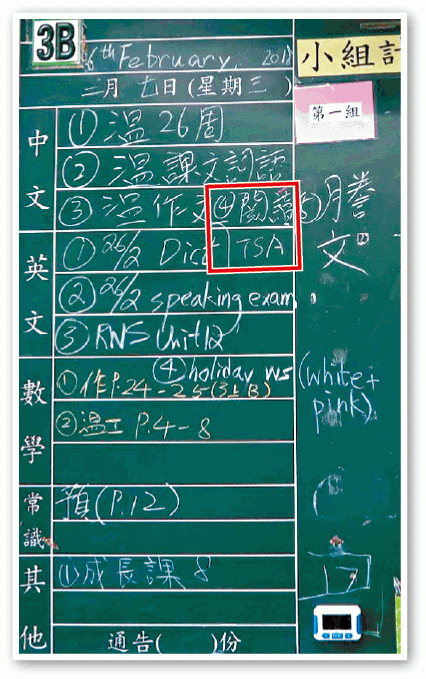 3B
6th February. 2018
小組討
二月七日(星期三)
第一組
中文
①溫26周
②溫課文詞語
③溫作文④閱讀⑤謄文
英文
①26/2 Dict TSA
②26/2 speaking exam
③RNS Unit12
④holiday ws (white + pink)
數學
①作P.24-25(3上B)
②溫工P.4-8
常識
預(P.12)
其他
①成長課 8
通告( )份